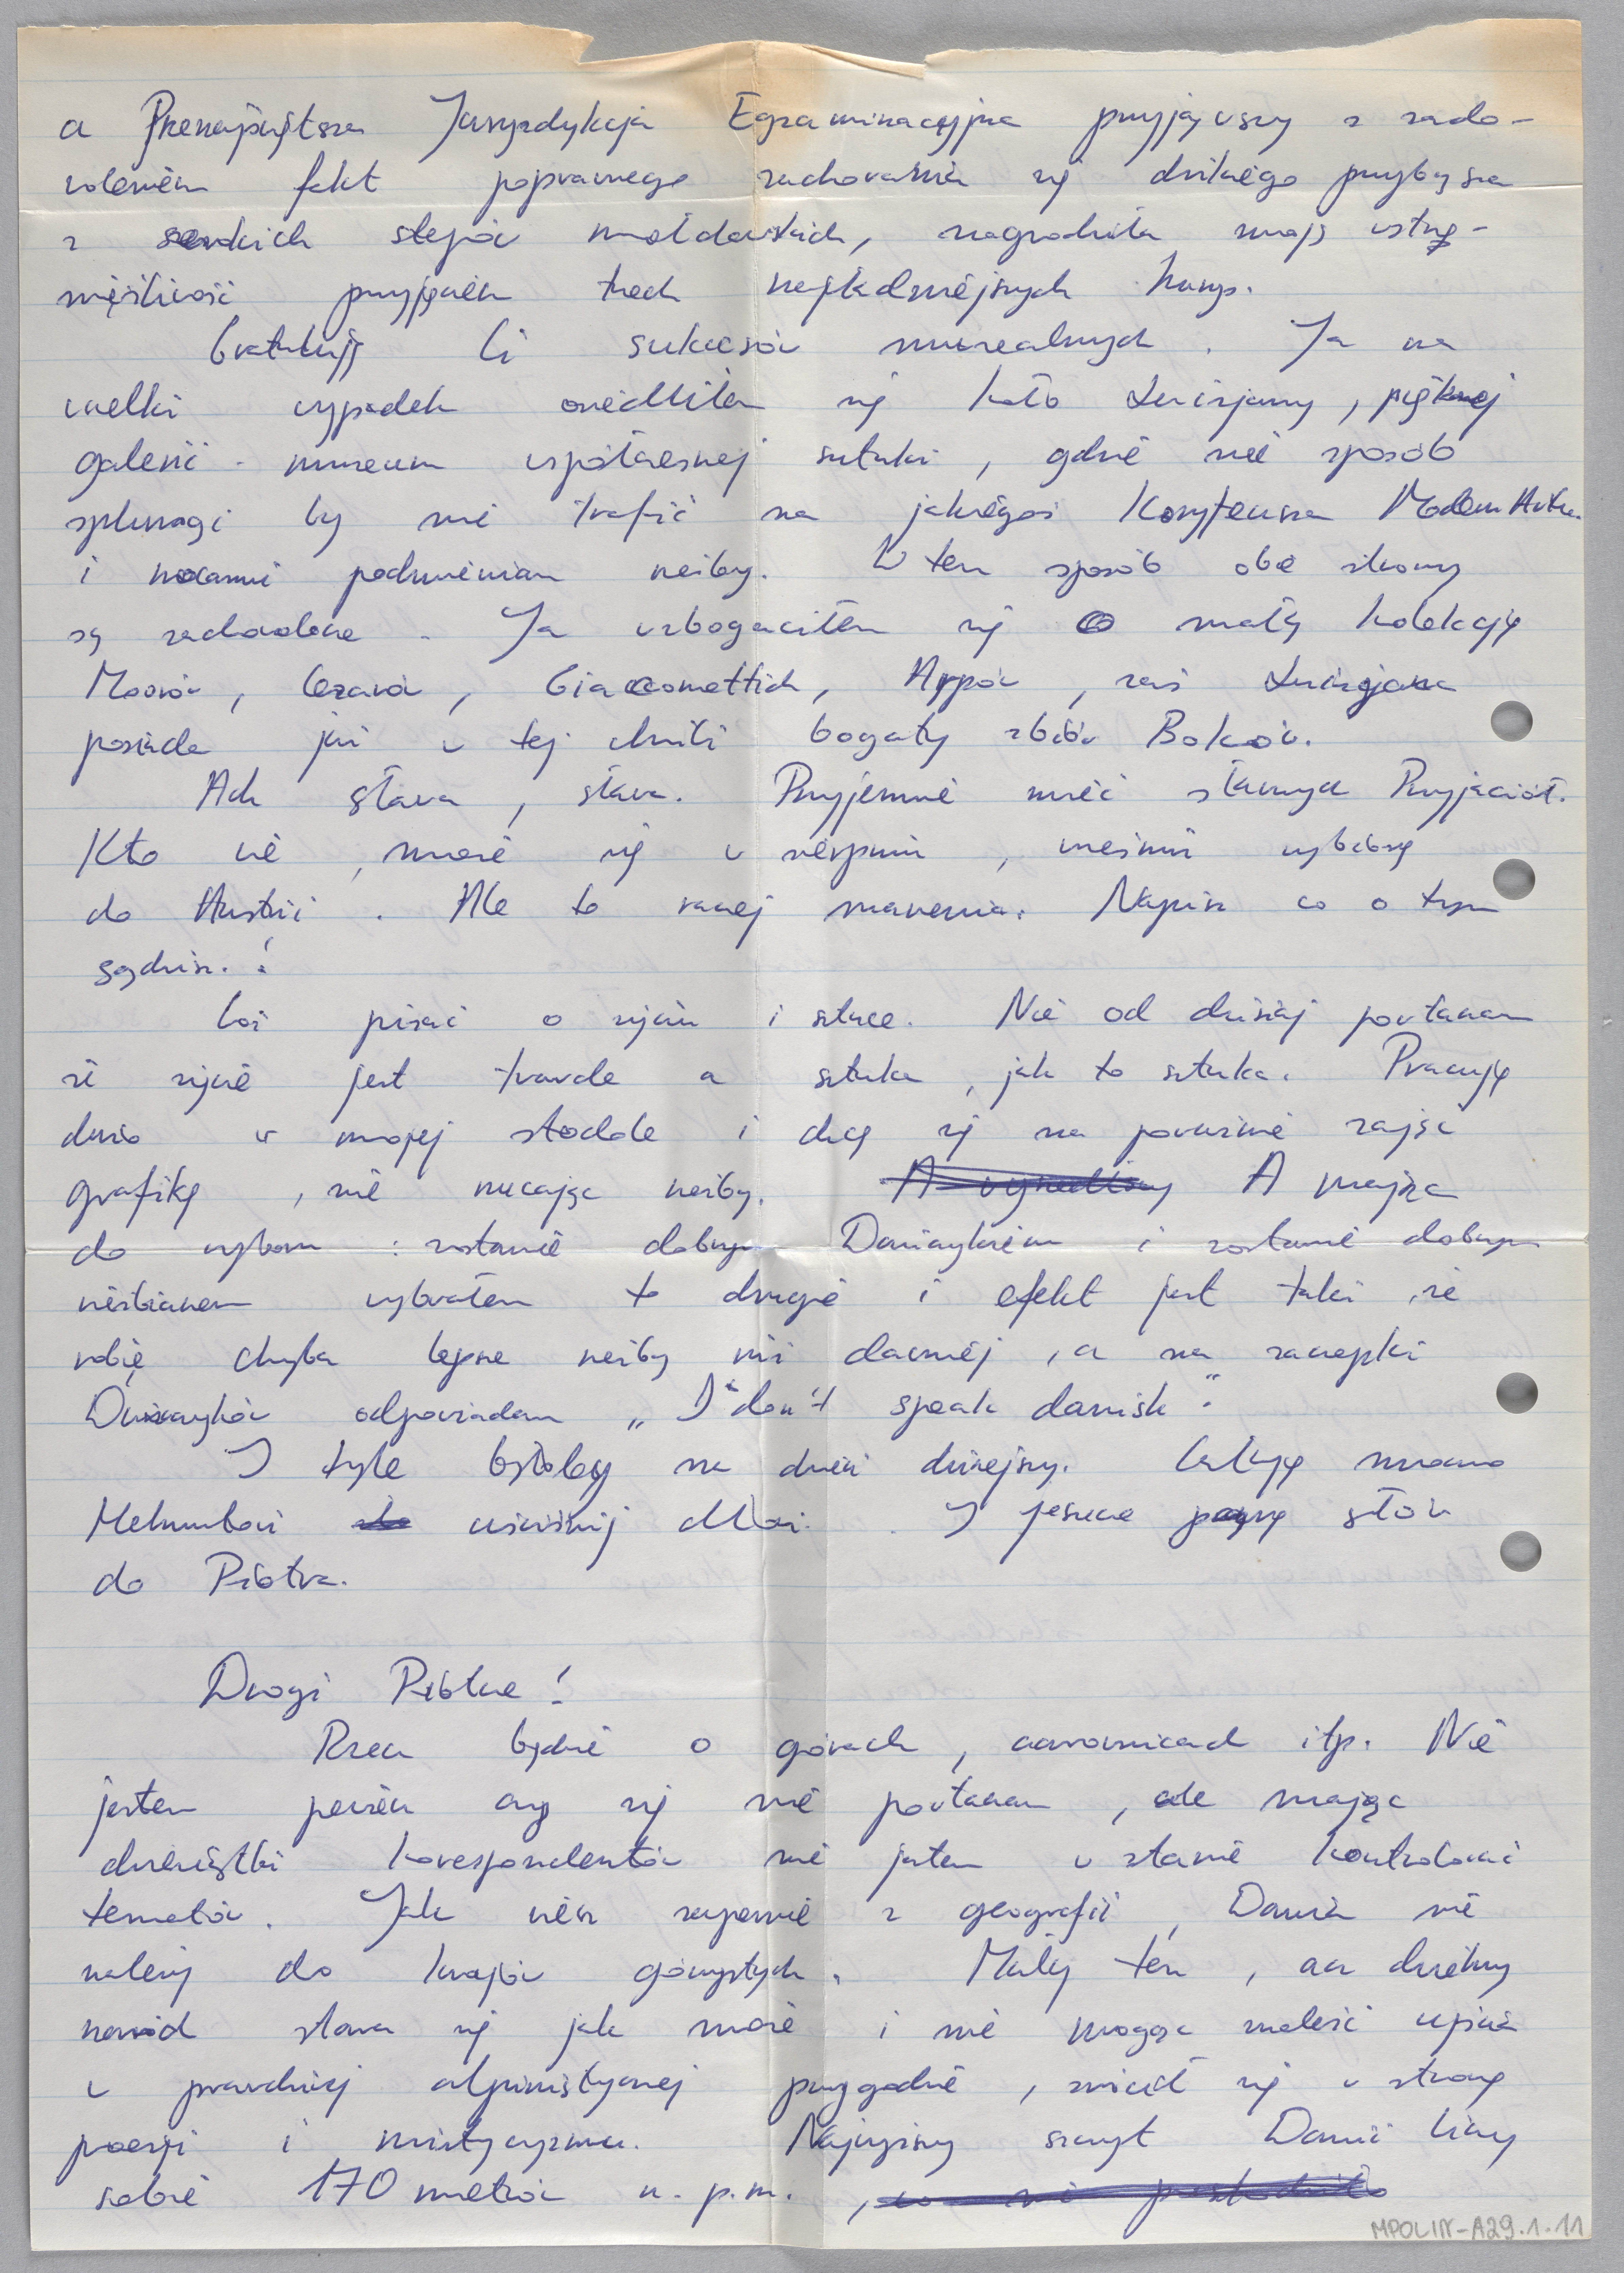 a Przenajświętsza Jurysdykcja Egzaminacyjna przyjąwszy z zado-
woleniem fakt poprawnego zachowania się dzikiego przybysza
z stepów mołdawskich, nagrodziła moją wstrze-
mięźliwość przyjęciem trzech najładniejszych kurw.
Gratuluję Ci sukcesów muzealnych. Ja na
wszelki wypadek osiedliłem się koło Luizjany, pięknej
galerii - muzeum współczesnej sztuki, gdzie nie sposób
splunąć by nie trafić na jakiegoś Koryfeusza Modern Artu
i nocami podmieniam rzeźby. W ten sposób obie strony
są zadowolone. Ja wzbogaciłem się o małą kolekcję
Moorów, Cezarów, Giaccomettich, Arpów, zaś Luizjana
posiada już w tej chwili bogaty zbiór Boków.
Ach sława, sława. Przyjemnie mieć sławnych Przyjaciół.
Kto wie, może się w sierpniu, wrześniu wybiorę
do Austrii. Ale to raczej marzenia. Napisz co o tym
sądzisz.!
Coś pisać o życiu i sztuce. Nie od dzisiaj powtarzam
że życie jest twarde a sztuka, jak to sztuka. Pracuję
dużo w mojej stodole i chcę się na poważnie zająć
grafiką, nie rzucając rzeźby. A mając
do wyboru: zostanie dobrym Duńczykiem i zostanie dobrym
rzeźbiarzem wybrałem to drugie i efekt jest taki, że
robię chyba lepsze rzeźby niż dawniej, a na zaczepki
Duńczyków odpowiadam „I don't speak danish".
I tyle byłoby na dzień dzisiejszy. Całuję mocno
Helmutowi uściśnij dłoń. I jeszcze parę słów
do Piotra.
Drogi Piotrze!
Rzecz będzie o górach, czarownicach itp. Nie
jestem pewien czy się nie powtarzam, ale mając
dziesiątki korespondentów nie jestem w stanie kontrolować
tematów. Jak wiesz zapewne z geografii, Dania nie
należy do krajów górzystych. Mały ten, acz dzielny
naród stara się jak może i nie mogąc znaleźć ujścia
w prawdziwej alpinistycznej przygodzie, zwrócił się w stronę
poezji i mistycyzmu. Najwyższy szczyt Danii liczy
sobie 170 metrów n.p.m.,
MPOLIN-A29.1.11